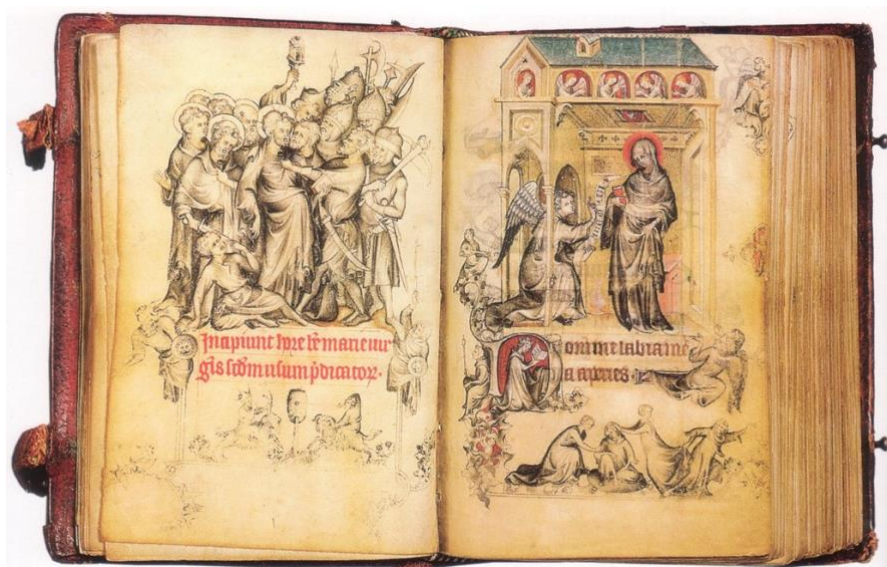 Incipiunt hore bē marie uir
gis scdm usum p̄dicatoꝝ.
Domine labia me
a aperies